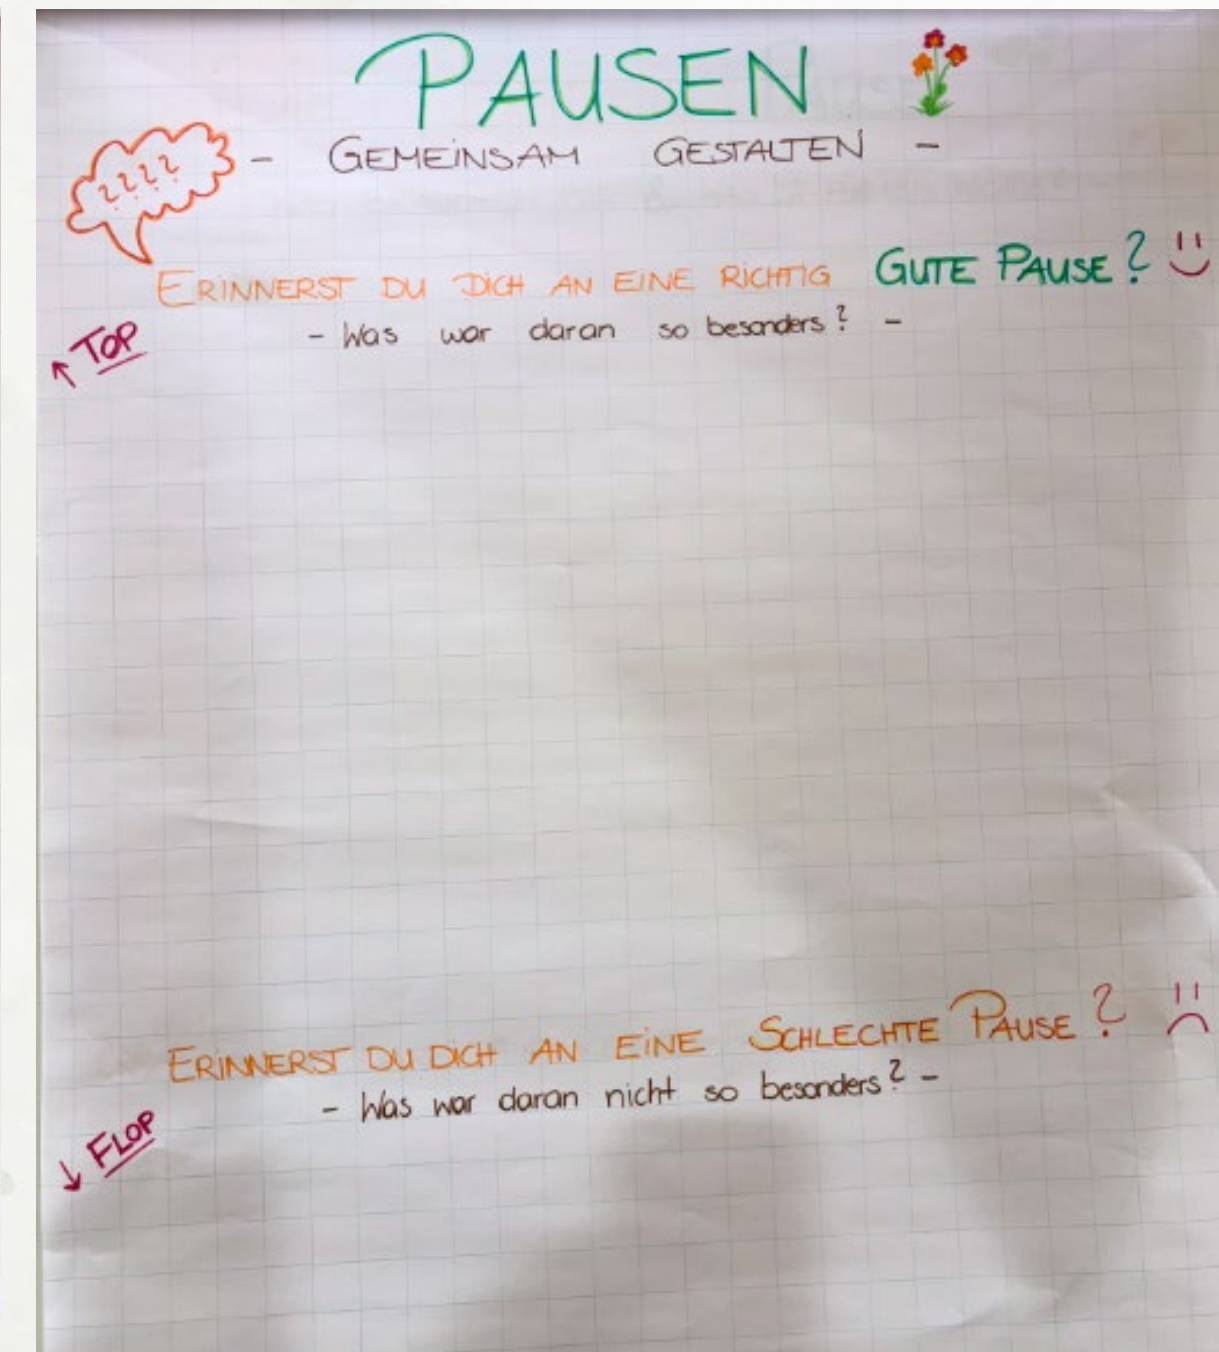 PAUSEN
????
- GEMEINSAM GESTALTEN -
ERINNERST DU DICH AN EINE RICHTIG GUTE PAUSE?
↑ TOP
- Was war daran so besonders? -
ERINNERST DU DICH AN EINE SCHLECHTE PAUSE?
- Was war daran nicht so besonders? -
↓ FLOP